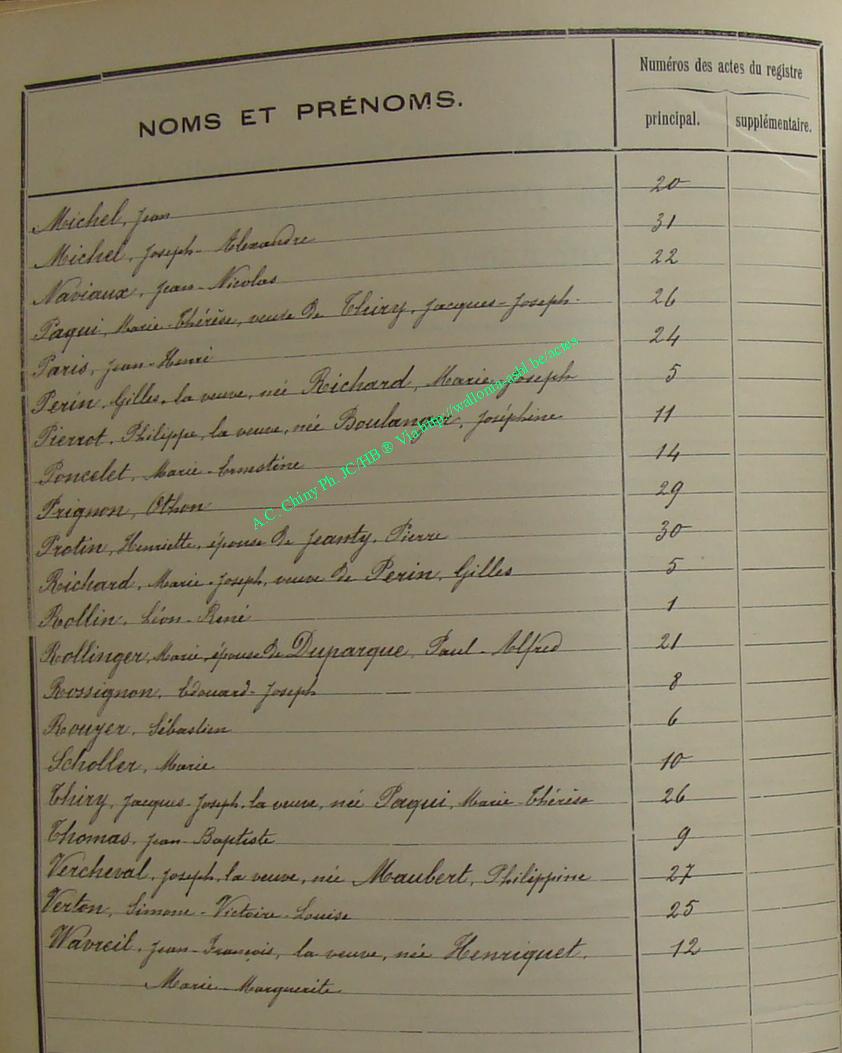 NOMS ET PRÉNOMS.
Numéros des actes du registre
principal.
supplémentaire.
Michel, Jean 20
Michel, Joseph-Alexandre 31
Naviaux, Jean-Nicolas 22
Paqui, Marie-Thérèse, veuve de Thiry, Jacques-Joseph- 26
Paris, Jean-Henri 24
Perin, Gilles, la veuve, née Richard, Marie-Joseph 5
Pierrot, Philippe, la veuve, née Boulanger, Joséphine 11
Poncelet, Marie-Ernestine 14
Prignon, Othon 29
Protin, Henriette, épouse de Jeanty, Pierre 30
Richard, Marie-Joseph, veuve de Perin, Gilles 5
Rollin, Léon-René 1
Rollinger, Marie, épouse de Duparque, Paul-Alfred 21
Rossignon, Edouard-Joseph 8
Rouyer, Sébastien 6
Scholler, Marie 10
Thiry, Jacques-Joseph, la veuve, née Paqui, Marie-Thérèse 26
Thomas, Jean-Baptiste 9
Vercheval, Joseph, la veuve, née Maubert, Philippine 27
Verton, Simone-Victoire-Louise 25
Wavreil, Jean-François, la veuve, née Henriquet, 12
Marie-Marguerite
A.C. Chiny Ph. JC/HB ® Via http://wallonia-asbl.be/actes